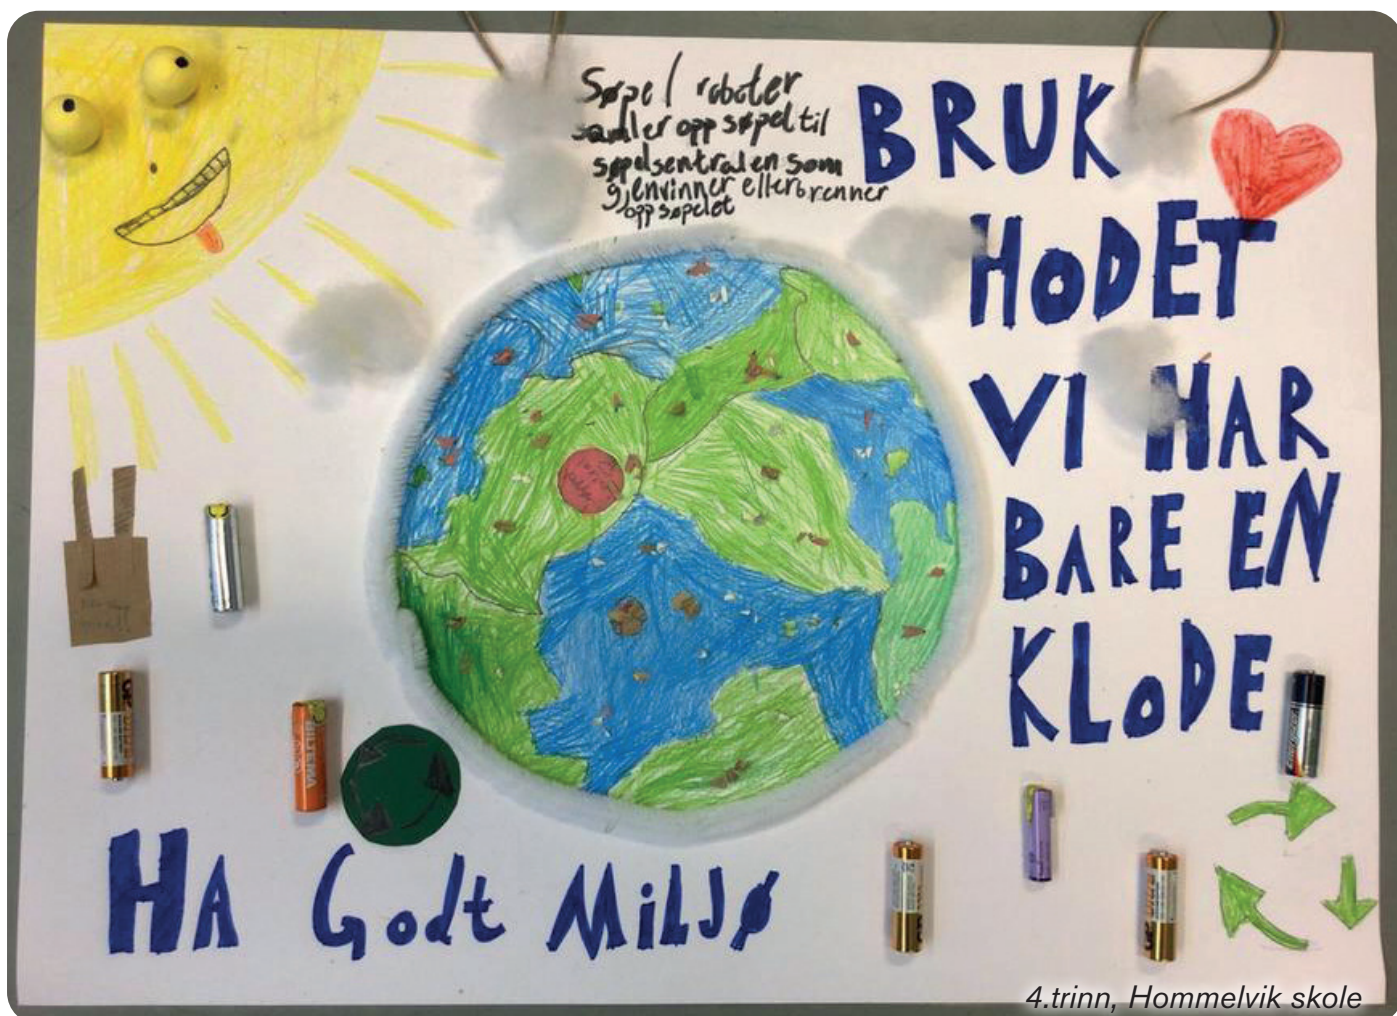 Søpel roboter
samler opp søpel til
søpelsentralen som
gjenvinner eller brenner
opp søpelet
BRUK
HODET
VI HAR
BARE EN
KLODE
BILTEMA
HA Godt MiLJø
4.trinn, Hommelvik skole